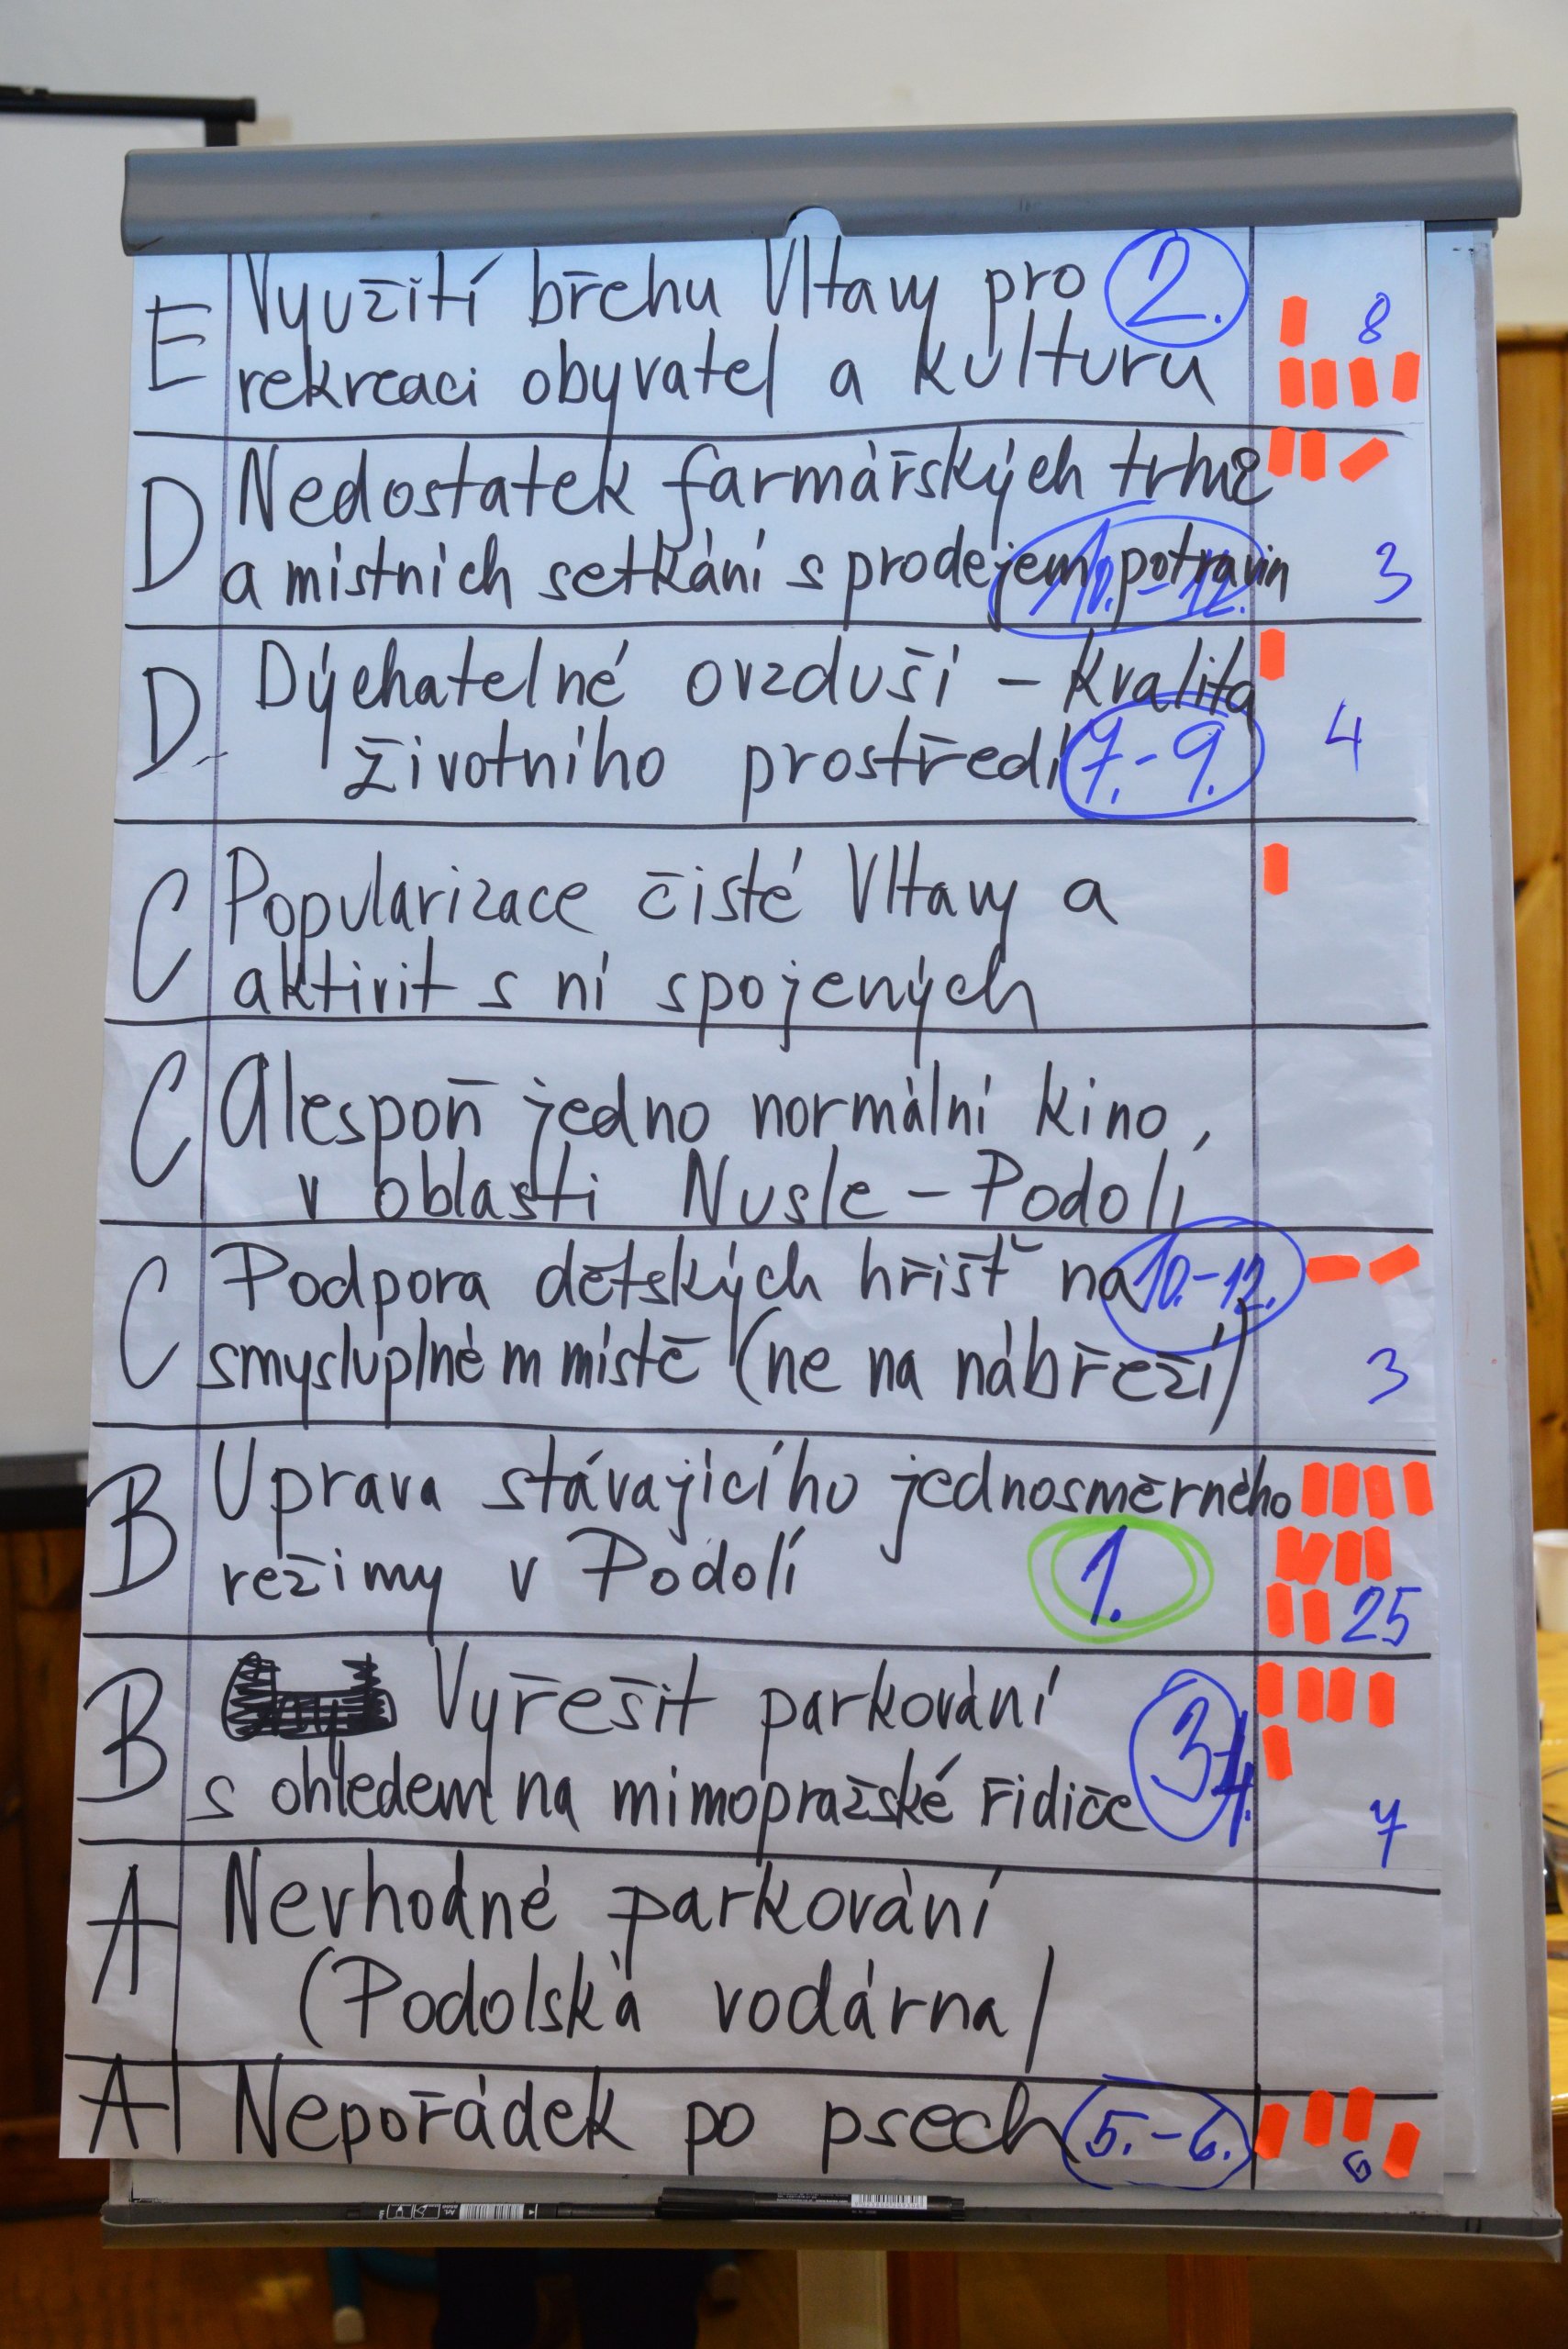 E Využití břehu Vltavy pro 2. 8
rekreaci obyvatel a kulturu
D Nedostatek farmářských trhů
a místních setkání s prodejem potravin 10.-12. 3
D Dýchatelné ovzduší - kvalita
životního prostředí 7.-9. 4
C Popularizace čisté Vltavy a
aktivit s ní spojených
C Alespoň jedno normální kino,
v oblasti Nusle - Podolí
C Podpora dětských hřišť na 10.-12.
smysluplném místě (ne na nábřeží) 3
B Uprava stávajícího jednosměrného
režimy v Podolí 1. 25
B Vyřešit parkování
s ohledem na mimopražské řidiče 3-4. 7
A Nevhodné parkování
(Podolská vodárna)
A Nepořádek po psech 5.-6. 6